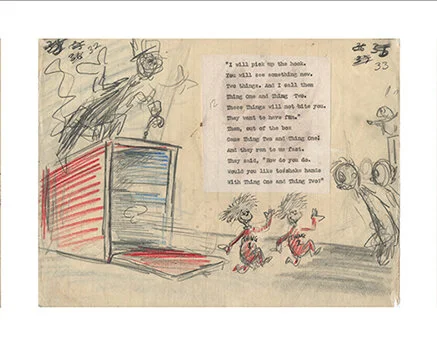 32
33
"I will pick up the hook.
You will see something new.
Two things. And I call them
Thing One and Thing Two.
These Things will not bite you.
They want to have fun."
Then, out of the box
Came Thing Two and Thing One!
And they ran to us fast.
They said, "How do you do.
Would you like to shake hands
With Thing One and Thing Two?"